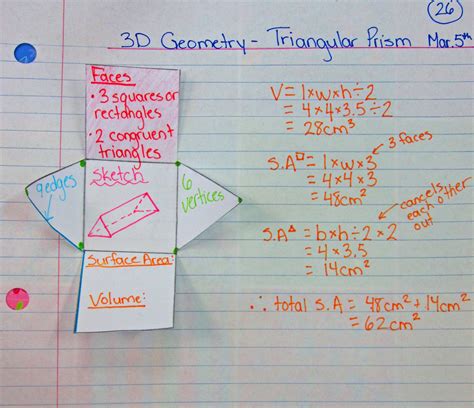 26
3D Geometry - Triangular Prism Mar. 5th
Faces
• 3 squares or
rectangles
• 2 congruent
triangles
9 edges
Sketch
6
vertices
Surface Area:
Volume:
V = l×w×h÷2
= 4×4×3.5÷2
= 28cm³
3 faces
S.A□ = l×w×3
= 4×4×3
= 48cm²
cancels
each other
out
S.A△ = b×h÷2×2
= 4×3.5
= 14cm²
∴ total S.A = 48cm² + 14cm²
= 62cm²